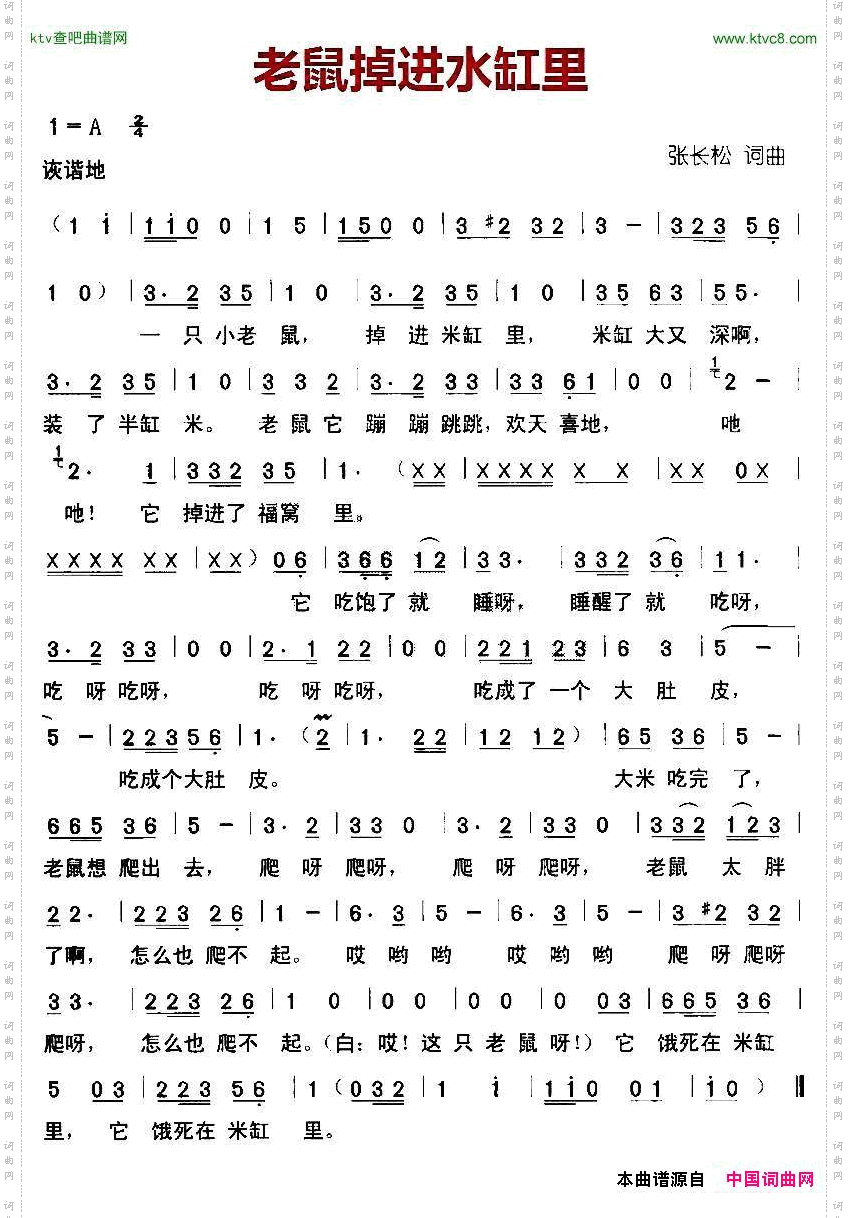 ktv查吧曲谱网
www.ktvc8.com
老鼠掉进水缸里
1=A 2/4
张长松 词曲
诙谐地
(1 i | 1 i 0 0 | 1 5 | 1 5 0 0 | 3 #2 3 2 | 3 - | 3 2 3 5 6 |
1 0) | 3· 2 3 5 | 1 0 | 3· 2 3 5 | 1 0 | 3 5 6 3 | 5 5· |
一 只 小老 鼠, 掉 进 米缸 里, 米缸 大又 深啊,
3· 2 3 5 | 1 0 | 3 3 2 | 3· 2 3 3 | 3 3 6 1 | 0 0 | 2 - |
装 了 半缸 米。 老 鼠 它 蹦 蹦 跳跳, 欢天 喜地, 吔
2· 1 | 3 3 2 3 5 | 1· (X X | X X X X X X | X X 0 X |
吔! 它 掉进了 福窝 里。
X X X X X X | X X) 0 6 | 3 6 6 1 2 | 3 3· | 3 3 2 3 6 | 1 1· |
它 吃饱了 就 睡呀, 睡醒了 就 吃呀,
3· 2 3 3 | 0 0 | 2· 1 2 2 | 0 0 | 2 2 1 2 3 | 6 3 | 5 - |
吃 呀 吃呀, 吃 呀 吃呀, 吃成了 一个 大 肚 皮,
5 - | 2 2 3 5 6 | 1· (2 | 1· 2 2 | 1 2 1 2) | 6 5 3 6 | 5 - |
吃成个 大肚 皮。 大米 吃完 了,
6 6 5 3 6 | 5 - | 3· 2 | 3 3 0 | 3· 2 | 3 3 0 | 3 3 2 1 2 3 |
老鼠想 爬出 去, 爬 呀 爬呀, 爬 呀 爬呀, 老鼠 太 胖
2 2· | 2 2 3 2 6 | 1 - | 6· 3 | 5 - | 6· 3 | 5 - | 3 #2 3 2 |
了啊, 怎么也 爬不 起。 哎 哟 哟 哎 哟 哟 爬 呀 爬呀
3 3· | 2 2 3 2 6 | 1 0 | 0 0 | 0 0 | 0 0 3 | 6 6 5 3 6 |
爬呀, 怎么也 爬不 起。(白:哎!这 只 老 鼠 呀!) 它 饿死在 米缸
5 0 3 | 2 2 3 5 6 | 1 (0 3 2 | 1 i | 1 i 0 0 1 | i 0) ‖
里, 它 饿死在 米缸 里。
本曲谱源自 中国词曲网